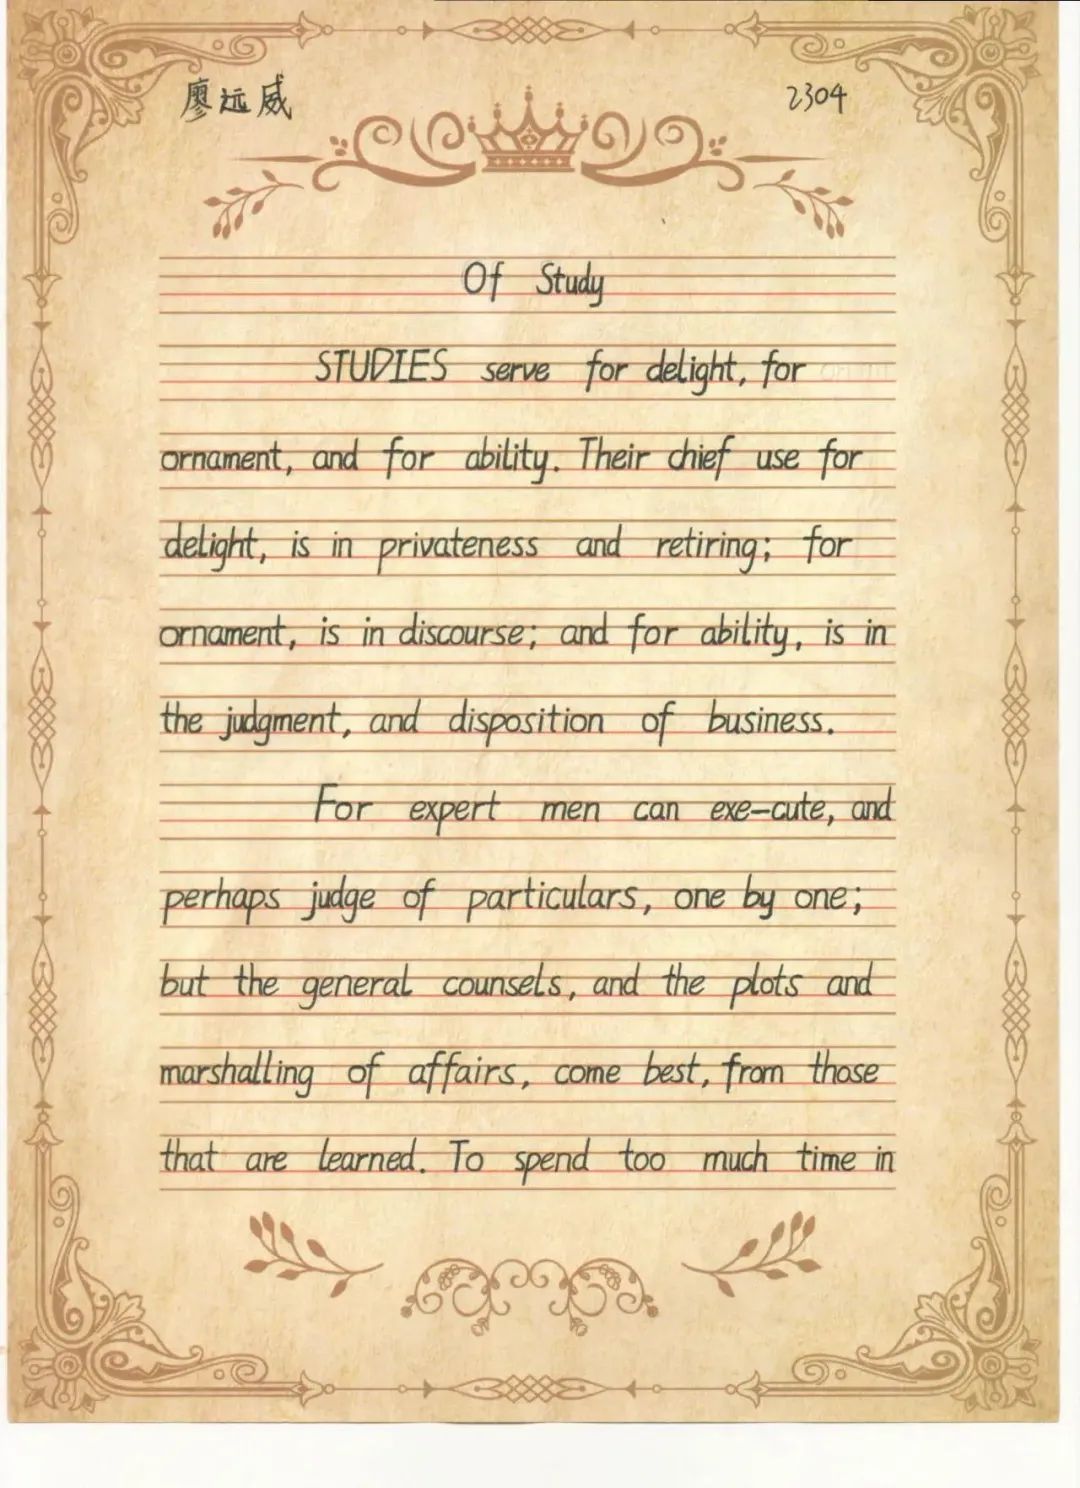 廖远威 2304
Of Study
STUDIES serve for delight, for
ornament, and for ability. Their chief use for
delight, is in privateness and retiring; for
ornament, is in discourse; and for ability, is in
the judgment, and disposition of business.
For expert men can exe-cute, and
perhaps judge of particulars, one by one;
but the general counsels, and the plots and
marshalling of affairs, come best, from those
that are learned. To spend too much time in